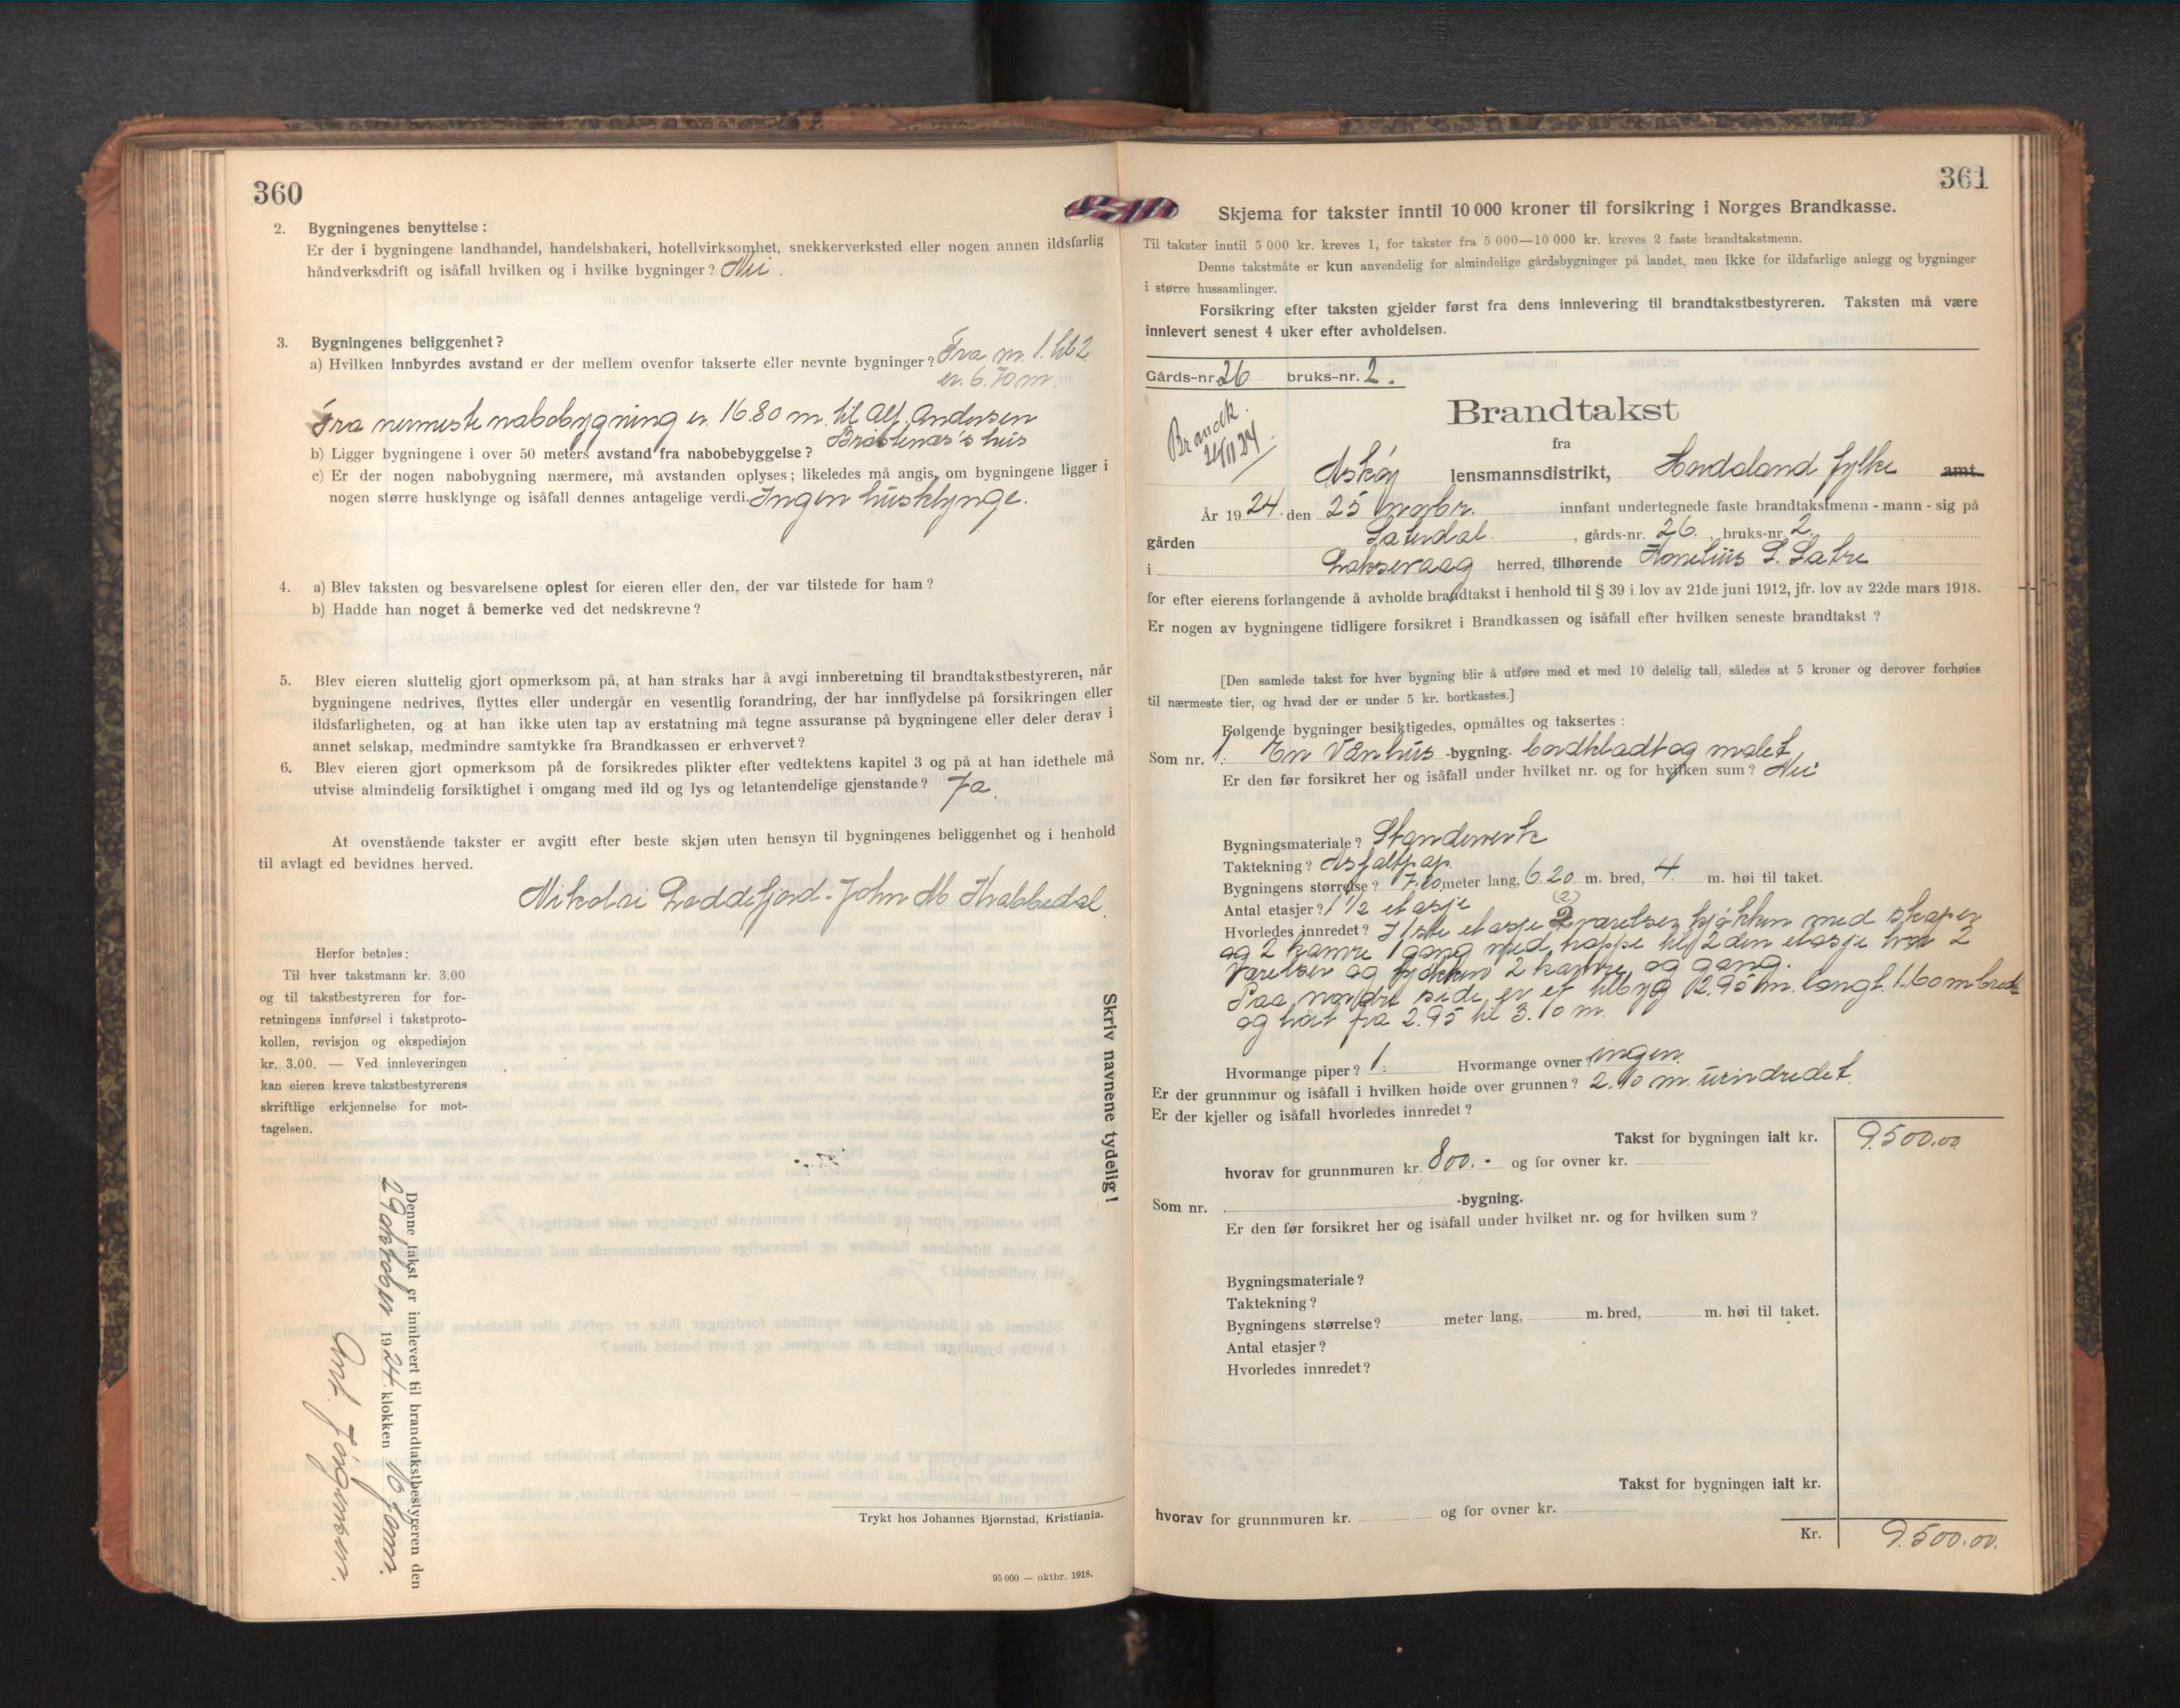 360
2. Bygningenes benyttelse :
Er der i bygningene landhandel, handelsbakeri, hotellvirksomhet, snekkerverksted eller nogen annen ildsfarlig
håndverksdrift og isåfall hvilken og i hvilke bygninger? Nei.
3. Bygningenes beliggenhet?
a) Hvilken innbyrdes avstand er der mellem ovenfor takserte eller nevnte bygninger? Fra nr. 1. til 2
er. 6.70 m.
Fra nermeste nabobygning er. 16.80 m. til Alf. Andersen
Bratenæs's hus
b) Ligger bygningene i over 50 meters avstand fra nabobebyggelse?
c) Er der nogen nabobygning nærmere, må avstanden oplyses; likeledes må angis, om bygningene ligger i
nogen større husklynge og isåfall dennes antagelige verdi. Ingen husklynge.
4. a) Blev taksten og besvarelsene oplest for eieren eller den, der var tilstede for ham?
b) Hadde han noget å bemerke ved det nedskrevne?
5. Blev eieren sluttelig gjort opmerksom på, at han straks har å avgi innberetning til brandtakstbestyreren, når
bygningene nedrives, flyttes eller undergår en vesentlig forandring, der har innflydelse på forsikringen eller
ildsfarligheten, og at han ikke uten tap av erstatning må tegne assuranse på bygningene eller deler derav i
annet selskap, medmindre samtykke fra Brandkassen er erhvervet?
6. Blev eieren gjort opmerksom på de forsikredes plikter efter vedtektens kapitel 3 og på at han idethele må
utvise almindelig forsiktighet i omgang med ild og lys og letantendelige gjenstande? Ja.
At ovenstående takster er avgitt efter beste skjøn uten hensyn til bygningenes beliggenhet og i henhold
til avlagt ed bevidnes herved.
Nikolai Loddefjord. John M Krabbedal.
Herfor betales:
Til hver takstmann kr. 3.00
og til takstbestyreren for for-
retningens innførsel i takstproto-
kollen, revisjon og ekspedisjon
kr. 3.00. — Ved innleveringen
kan eieren kreve takstbestyrerens
skriftlige erkjennelse for mot-
tagelsen.
Skriv navnene tydelig!
Denne takst er innlevert til brandtakstbestyreren den
29 oktober 1924 klokken 10 form.
Ant. Jørgensen.
Trykt hos Johannes Bjørnstad, Kristiania.
95 000 — oktbr. 1918.
361
Skjema for takster inntil 10 000 kroner til forsikring i Norges Brandkasse.
Til takster inntil 5 000 kr. kreves 1, for takster fra 5 000—10 000 kr. kreves 2 faste brandtakstmenn.
Denne takstmåte er kun anvendelig for almindelige gårdsbygninger på landet, men ikke for ildsfarlige anlegg og bygninger
i større hussamlinger.
Forsikring efter taksten gjelder først fra dens innlevering til brandtakstbestyreren. Taksten må være
innlevert senest 4 uker efter avholdelsen.
Gårds-nr. 26 bruks-nr. 2.
Brandtakst
fra
Brandk.
Askøy lensmannsdistrikt, Hordaland fylke amt.
År 1924. den 25 novbr. innfant undertegnede faste brandtakstmenn - mann - sig på
gården , gårds-nr. 26. bruks-nr. 2.
i Laksevaag herred, tilhørende Kornelius S. Sætre
for efter eierens forlangende å avholde brandtakst i henhold til § 39 i lov av 21de juni 1912, jfr. lov av 22de mars 1918.
Er nogen av bygningene tidligere forsikret i Brandkassen og isåfall efter hvilken seneste brandtakst ?
[Den samlede takst for hver bygning blir å utføre med et med 10 delelig tall, således at 5 kroner og derover forhøies
til nærmeste tier, og hvad der er under 5 kr. bortkastes.]
Følgende bygninger besiktigedes, opmåltes og taksertes :
Som nr. 1. En Vånhus -bygning. bordkladt og malet
Er den før forsikret her og isåfall under hvilket nr. og for hvilken sum? Nei
Bygningsmateriale? Standerverk
Taktekning? Asfaltpap.
Bygningens størrelse? 7.20 meter lang, 6.20 m. bred, 4. m. høi til taket.
Antal etasjer? 1 1/2 etasje
Hvorledes innredet? I 1ste etasje 2 (2) værelser kjøkken med skaper
og 2 kamre 1 gang med trappe til 2den etasje hvor 2
værelser og kjøkken 2 kamre og gang.
Paa nordre side er et tilbyg 2.95 m. langt. 1.60 m bredt
og høit fra 2.95 til 3.10 m.
Hvormange piper? 1. Hvormange ovner? ingen.
Er der grunnmur og isåfall i hvilken høide over grunnen? 2.10 m. uindredet.
Er der kjeller og isåfall hvorledes innredet?
Takst for bygningen ialt kr. 9.500.00
hvorav for grunnmuren kr. 800.- og for ovner kr.
Som nr. -bygning.
Er den før forsikret her og isåfall under hvilket nr. og for hvilken sum?
Bygningsmateriale?
Taktekning?
Bygningens størrelse? meter lang, m. bred, m. høi til taket.
Antal etasjer?
Hvorledes innredet?
Takst for bygningen ialt kr.
hvorav for grunnmuren kr. og for ovner kr.
Kr. 9.500.00.